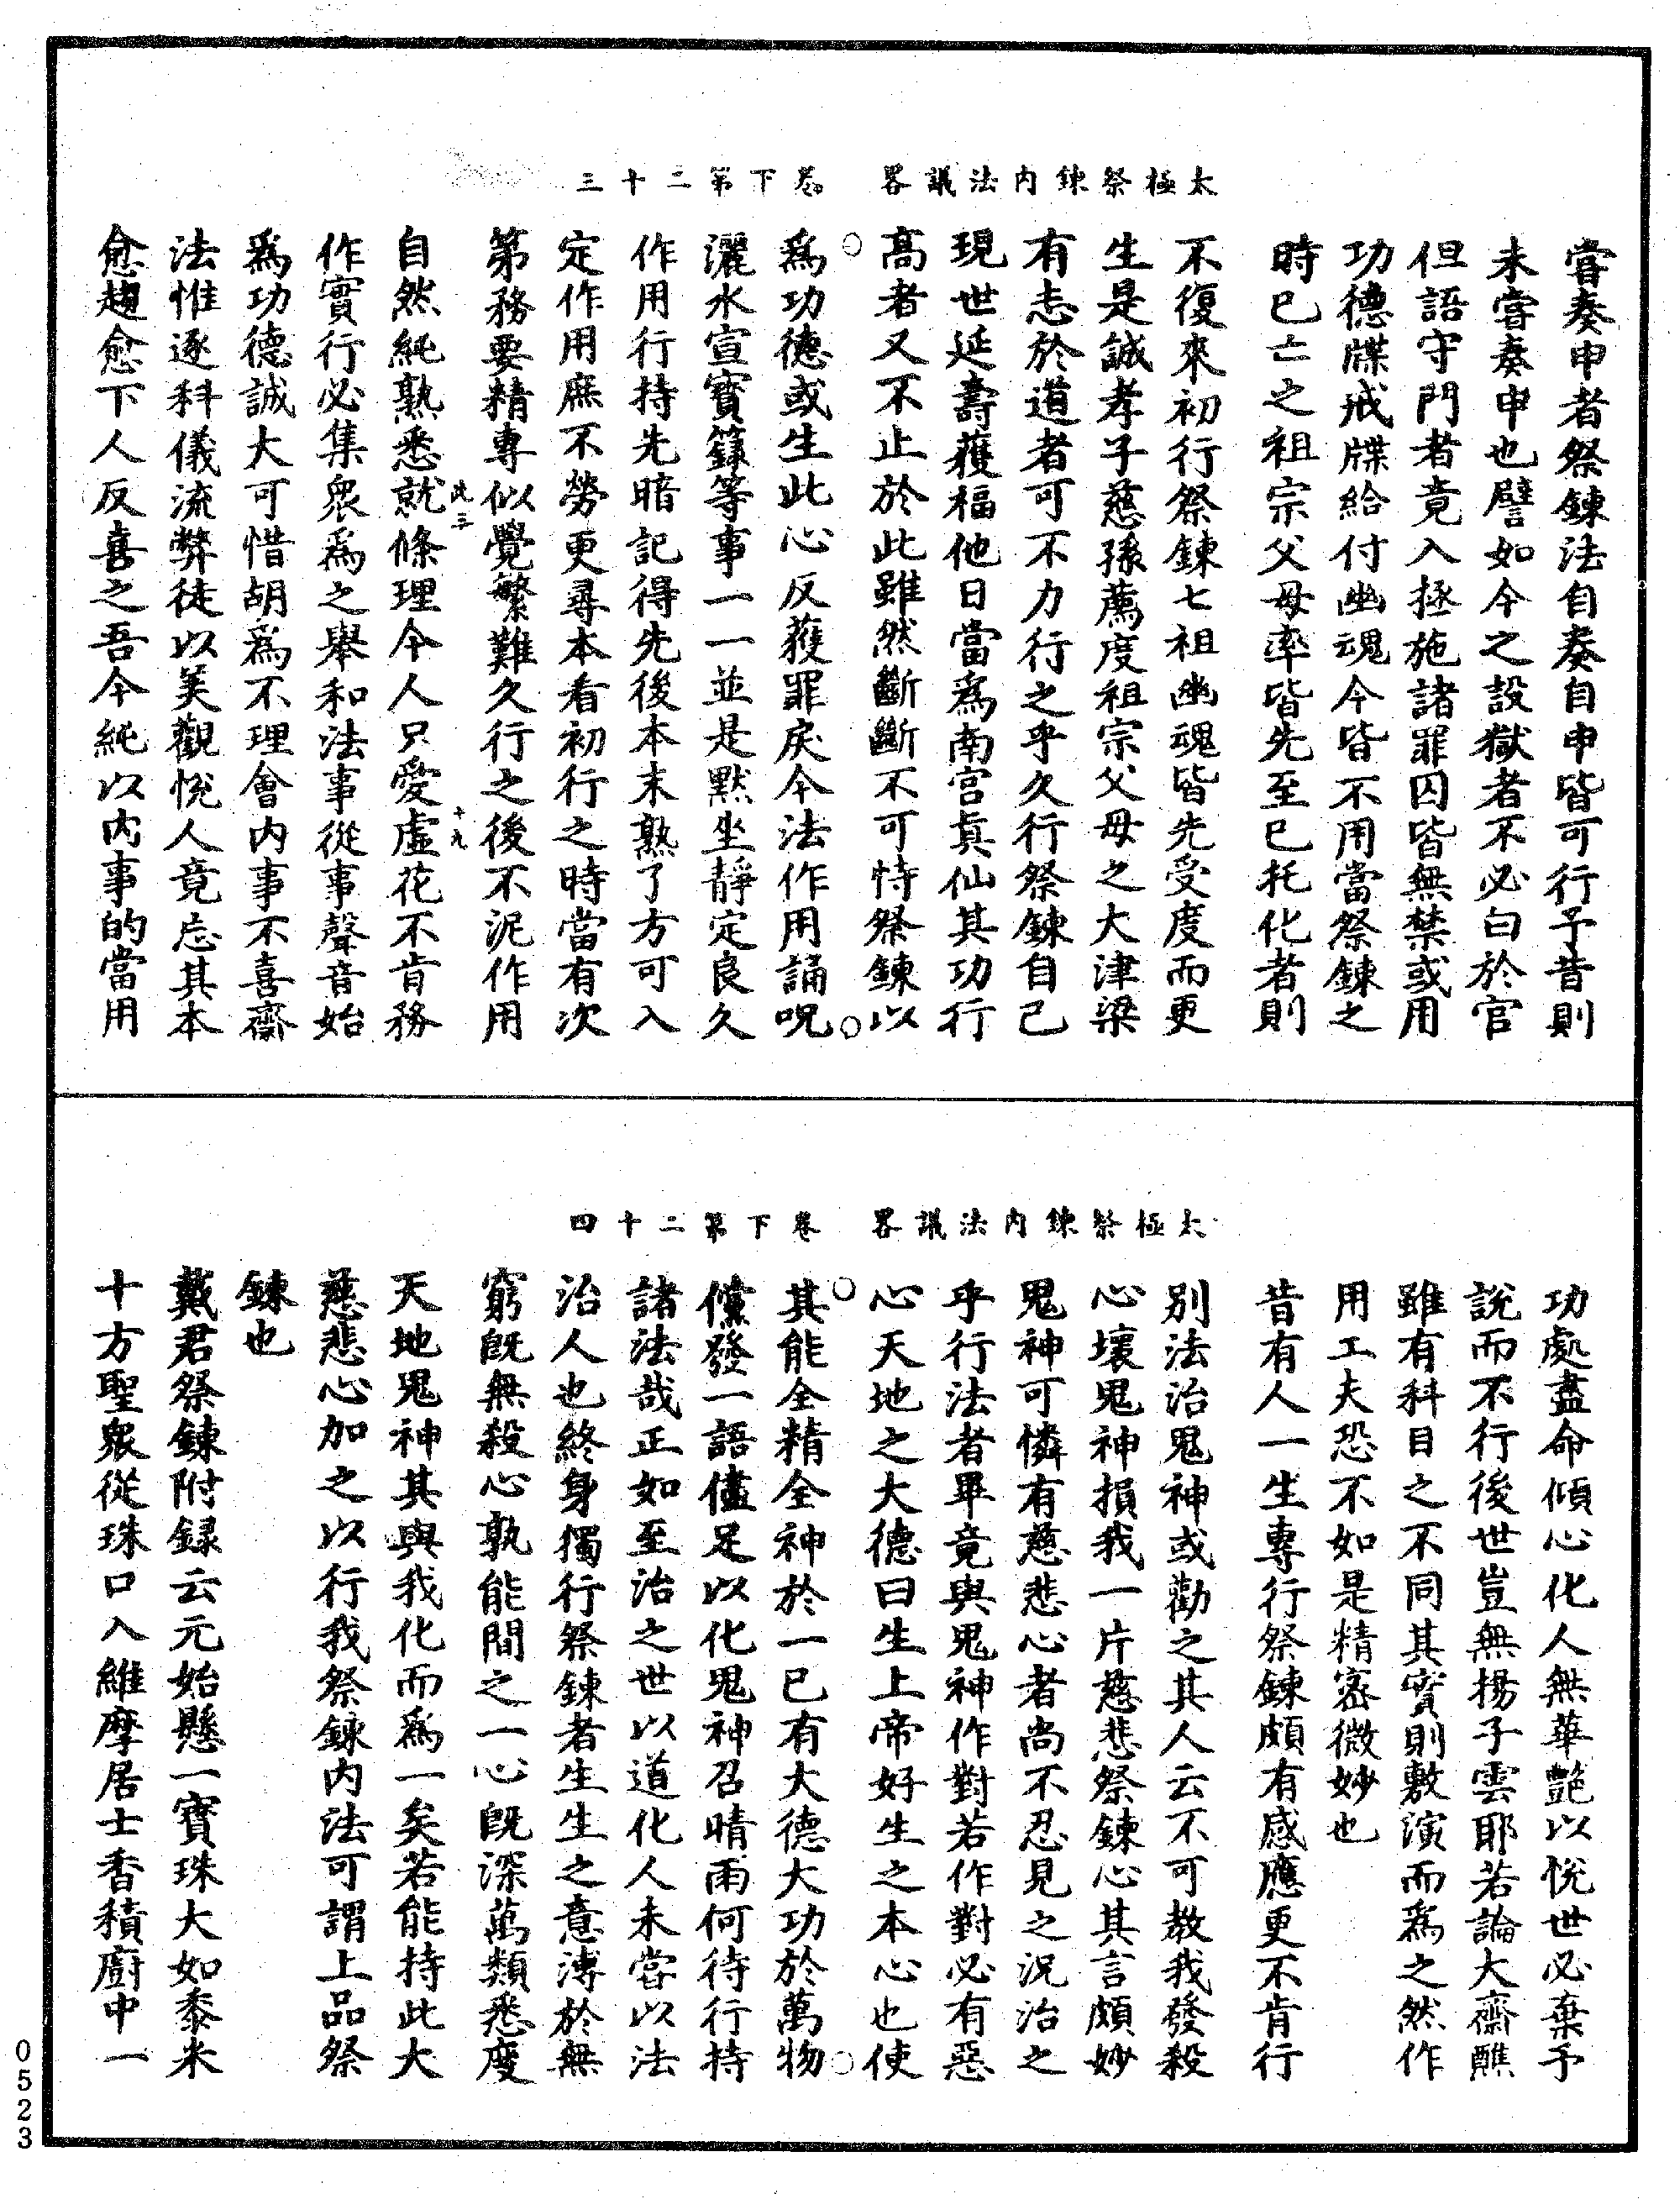 太極祭鍊內法議畧　卷下第二十三
嘗奏申者祭鍊法自奏自申皆可行予昔則
未嘗奏申也譬如今之設獄者不必白於官
但語守門者竟入拯施諸罪囚皆無禁或用
功德牒戒牒給付幽魂今皆不用當祭鍊之
時已亡之祖宗父母率皆先至已托化者則
不復來初行祭鍊七祖幽魂皆先受度而更
生是誠孝子慈孫薦度祖宗父母之大津梁
有志於道者可不力行之乎久行祭鍊自己
現世延壽獲福他日當爲南宮真仙其功行
高者又不止於此雖然斷斷不可恃祭鍊以
爲功德或生此心反獲罪戾今法作用誦呪
灑水宣寶籙等事一一並是默坐靜定良久
作用行持先暗記得先後本末熟了方可入
定作用庶不勞更尋本看初行之時當有次
第務要精專似覺繁難久行之後不泥作用
此三　十九
自然純熟悉就條理今人只愛虛花不肯務
作實行必集衆爲之舉和法事從事聲音始
爲功德誠大可惜胡爲不理會内事不喜齋
法惟逐科儀流弊徒以美觀悅人竟忘其本
愈趨愈下人反喜之吾今純以内事的當用
太極祭鍊內法議畧　卷下第二十四
功處盡命傾心化人無華艷以悅世必棄予
說而不行後世豈無揚子雲耶若論大齋醮
雖有科目之不同其實則敷演而爲之然作
用工夫恐不如是精密微妙也
昔有人一生專行祭鍊頗有感應更不肯行
別法治鬼神或勸之其人云不可教我發殺
心壞鬼神損我一片慈悲祭鍊心其言頗妙
鬼神可憐有慈悲心者尚不忍見之況治之
乎行法者畢竟與鬼神作對若作對必有惡
心天地之大德曰生上帝好生之本心也使
其能全精全神於一已有大德大功於萬物
儻發一語儘足以化鬼神召晴雨何待行持
諸法哉正如至治之世以道化人未嘗以法
治人也終身獨行祭鍊者生生之意溥於無
窮旣無殺心孰能間之一心旣深萬類悉度
天地鬼神其與我化而爲一矣若能持此大
慈悲心加之以行我祭鍊内法可謂上品祭
鍊也
戴君祭鍊附録云元始懸一寶珠大如黍米
十方聖衆從珠口入維摩居士香積廚中一
0523